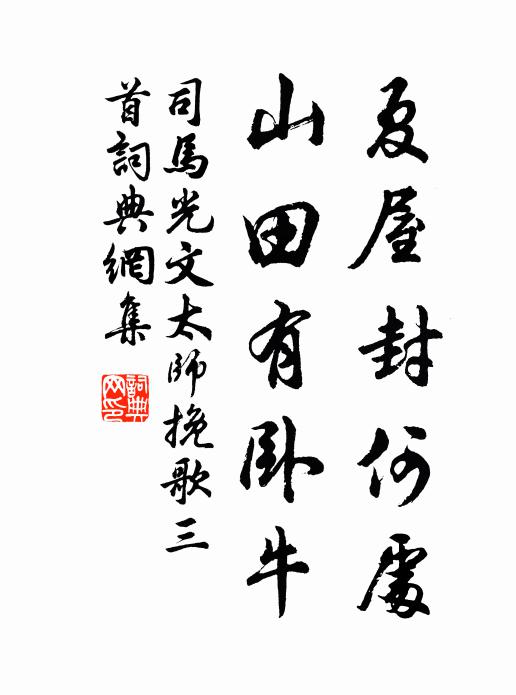 夏屋封何處
山田有卧牛
司馬光文太師挽歌三
首詞典網集
詞典網印